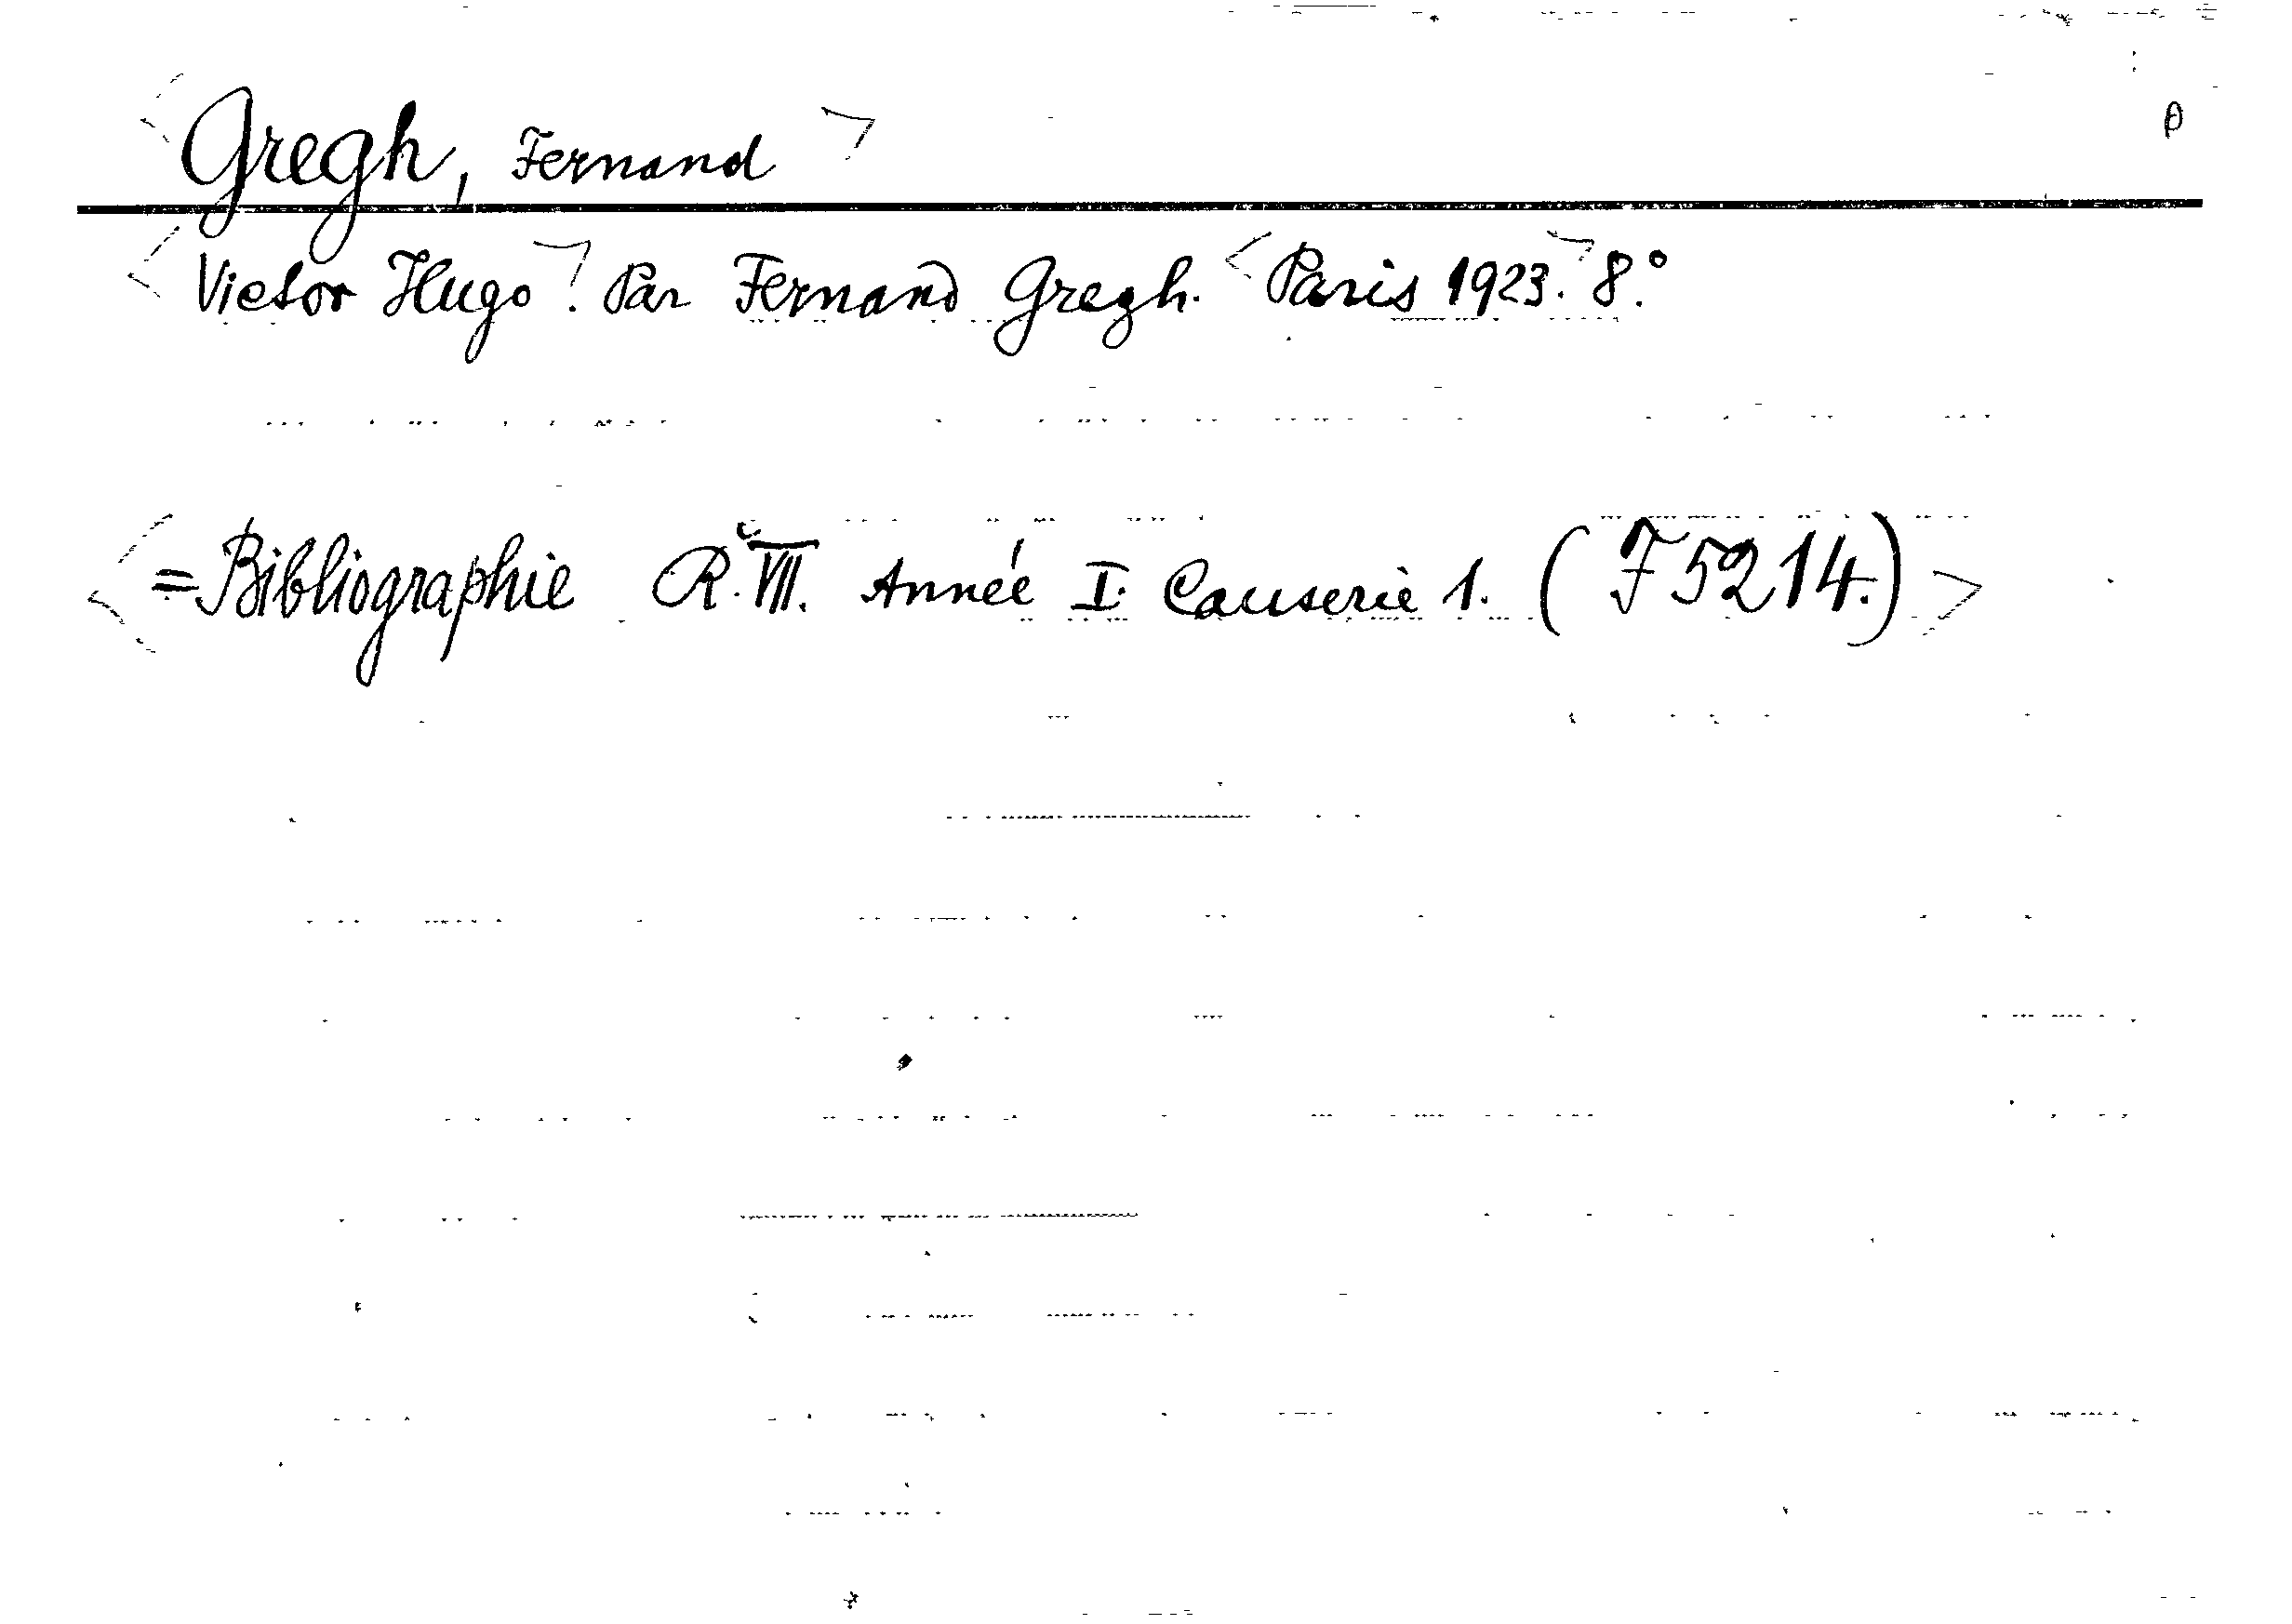 Gregh, Fernand
Victor Hugo. Par Fernand Gregh. Paris 1923. 8.°
= Bibliographie R. VII. Année I. Causerie 1. (F 5214.)